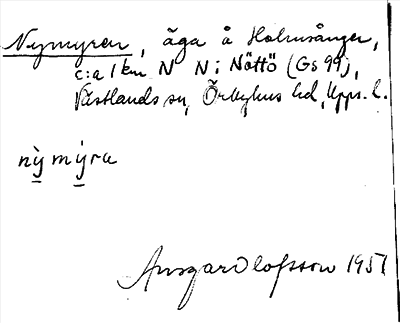 Nymyren, äga å Holmsånger,
c:a 1 km N N; Nöttö (Gs 99),
Västlands sn, Örbyhus hd, Upps. l.
nỳ mýra
Ansgar Olofsson 1951